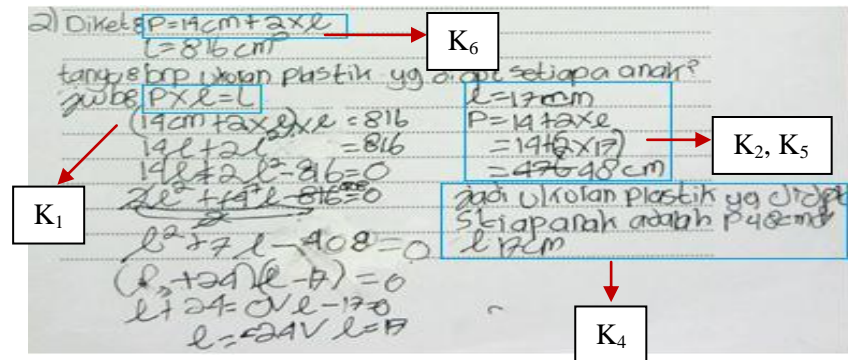 2) Diket : P=14cm+2xl
K6
L=816 cm²
tanya : brp ukuran plastik yg didpt setiapa anak?
jwb : P x l = L
(14cm+2xl)xl = 816
14l+2l² = 816
14l+2l²-816=0
2l²+14l-816=0
2
l²+7l-408=0
(l+24)(l-17)=0
l+24=0 V l-17=0
l=-24 V l=17
K1
l=17cm
P=14+2xl
=14+(2x17)
=48cm
K2, K5
Jadi ukuran plastik yg didpt
Setiap anak adalah P 48cm dr
l 17cm
K4